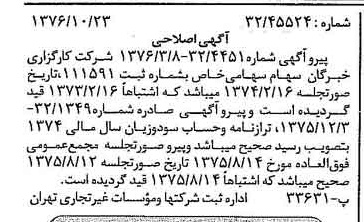 شماره: ۳۲/۴۵۵۲۴ ۱۳۷۶/۱۰/۲۳
آگهی اصلاحی
پیرو آگهی شماره ۳۲/۴۴۵۱-۱۳۷۶/۳/۸ شرکت کارگزاری
خبرگان سهام سهامی‌خاص بشماره ثبت ۱۱۱۵۹۱،تاریخ
صورتجلسه ۱۳۷۴/۲/۱۶ میباشد که اشتباهاً ۱۳۷۳/۲/۱۶ قید
گردیده است و پیرو آگهی صادره شماره ۳۲/۱۳۴۹۰-
۱۳۷۵/۱۲/۳، ترازنامه وحساب سودوزیان سال مالی ۱۳۷۴
بتصویب رسید صحیح میباشد وپیرو صورتجلسه مجمع‌عمومی
فوق‌العاده مورخ ۱۳۷۵/۸/۱۴ تاریخ صورتجلسه ۱۳۷۵/۸/۱۲
صحیح میباشد که اشتباهاً ۱۳۷۵/۸/۱۴ قید گردیده است.
پ-۳۳۶۳۱ اداره ثبت شرکتها ومؤسسات غیرتجاری تهران